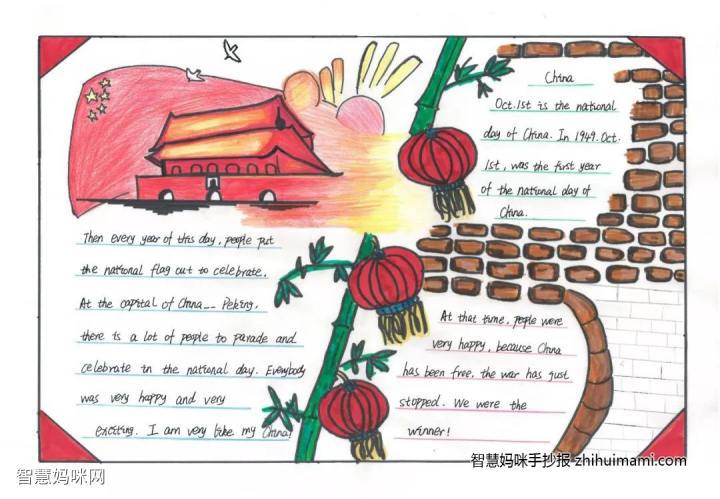 China
Oct.1st is the national
day of China. In 1949.Oct.
1st, was the first year
of the national day of
China.
At that time, people were
very happy, because China
has been free, the war has just
stopped. We were the
winner!
Then every year of this day, people put
the national flag out to celebrate.
At the capital of China-- Peking,
there is a lot of people to parade and
celebrate in the national day. Everybody
was very happy and very
exciting. I am very like my China!
智慧妈咪网
智慧妈咪手抄报 zhihuimami.com